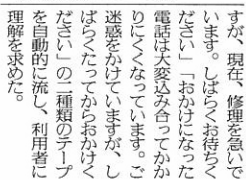 すが、現在、修理を急いで
います。しばらくお待ちく
ださい」「おかけになった
電話は大変込み合ってかか
りにくくなっています。ご
迷惑をかけていますが、し
ばらくたってからおかけく
ださい」の二種類のテープ
を自動的に流し、利用者に
理解を求めた。